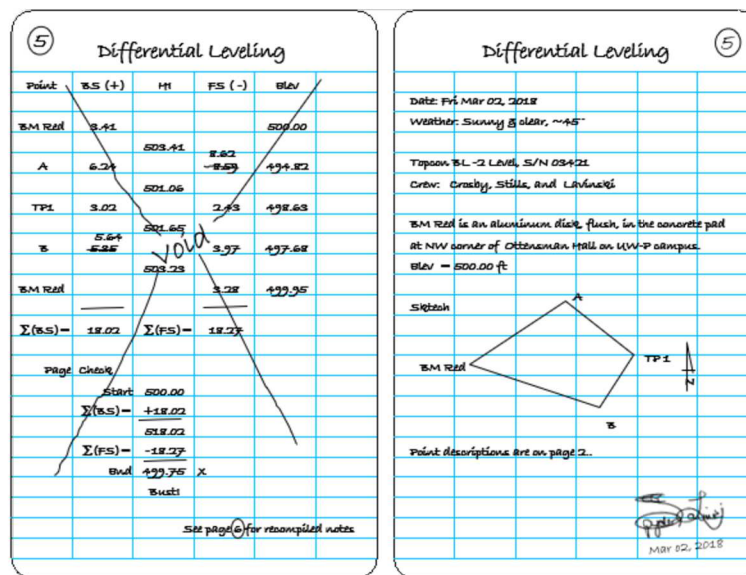 5
Differential Leveling
Point BS (+) HI FS (-) Elev
BM Red 3.41 500.00
503.41 8.62
A 6.24 8.59 494.82
501.06
TP1 3.02 2.43 498.63
501.65
5.64
B 5.55 3.97 497.68
503.23
BM Red 3.28 499.95
Void
Σ(BS)= 18.02 Σ(FS)= 18.27
Page Check
Start 500.00
Σ(BS)= +18.02
518.02
Σ(FS)= -18.27
End 499.75 X
Bust!
See page 6 for recompiled notes
5
Differential Leveling
Date: Fri Mar 02, 2018
Weather: Sunny & clear, ~45°
Topcon BL-2 Level, S/N 03421
Crew: Crosby, Stills, and Lavinski
BM Red is an aluminum disk, flush, in the concrete pad
at NW corner of Ottensman Hall on UW-P campus.
Elev = 500.00 ft
Sketch
A
TP1
BM Red
N
B
Point descriptions are on page 2.
Mar 02, 2018